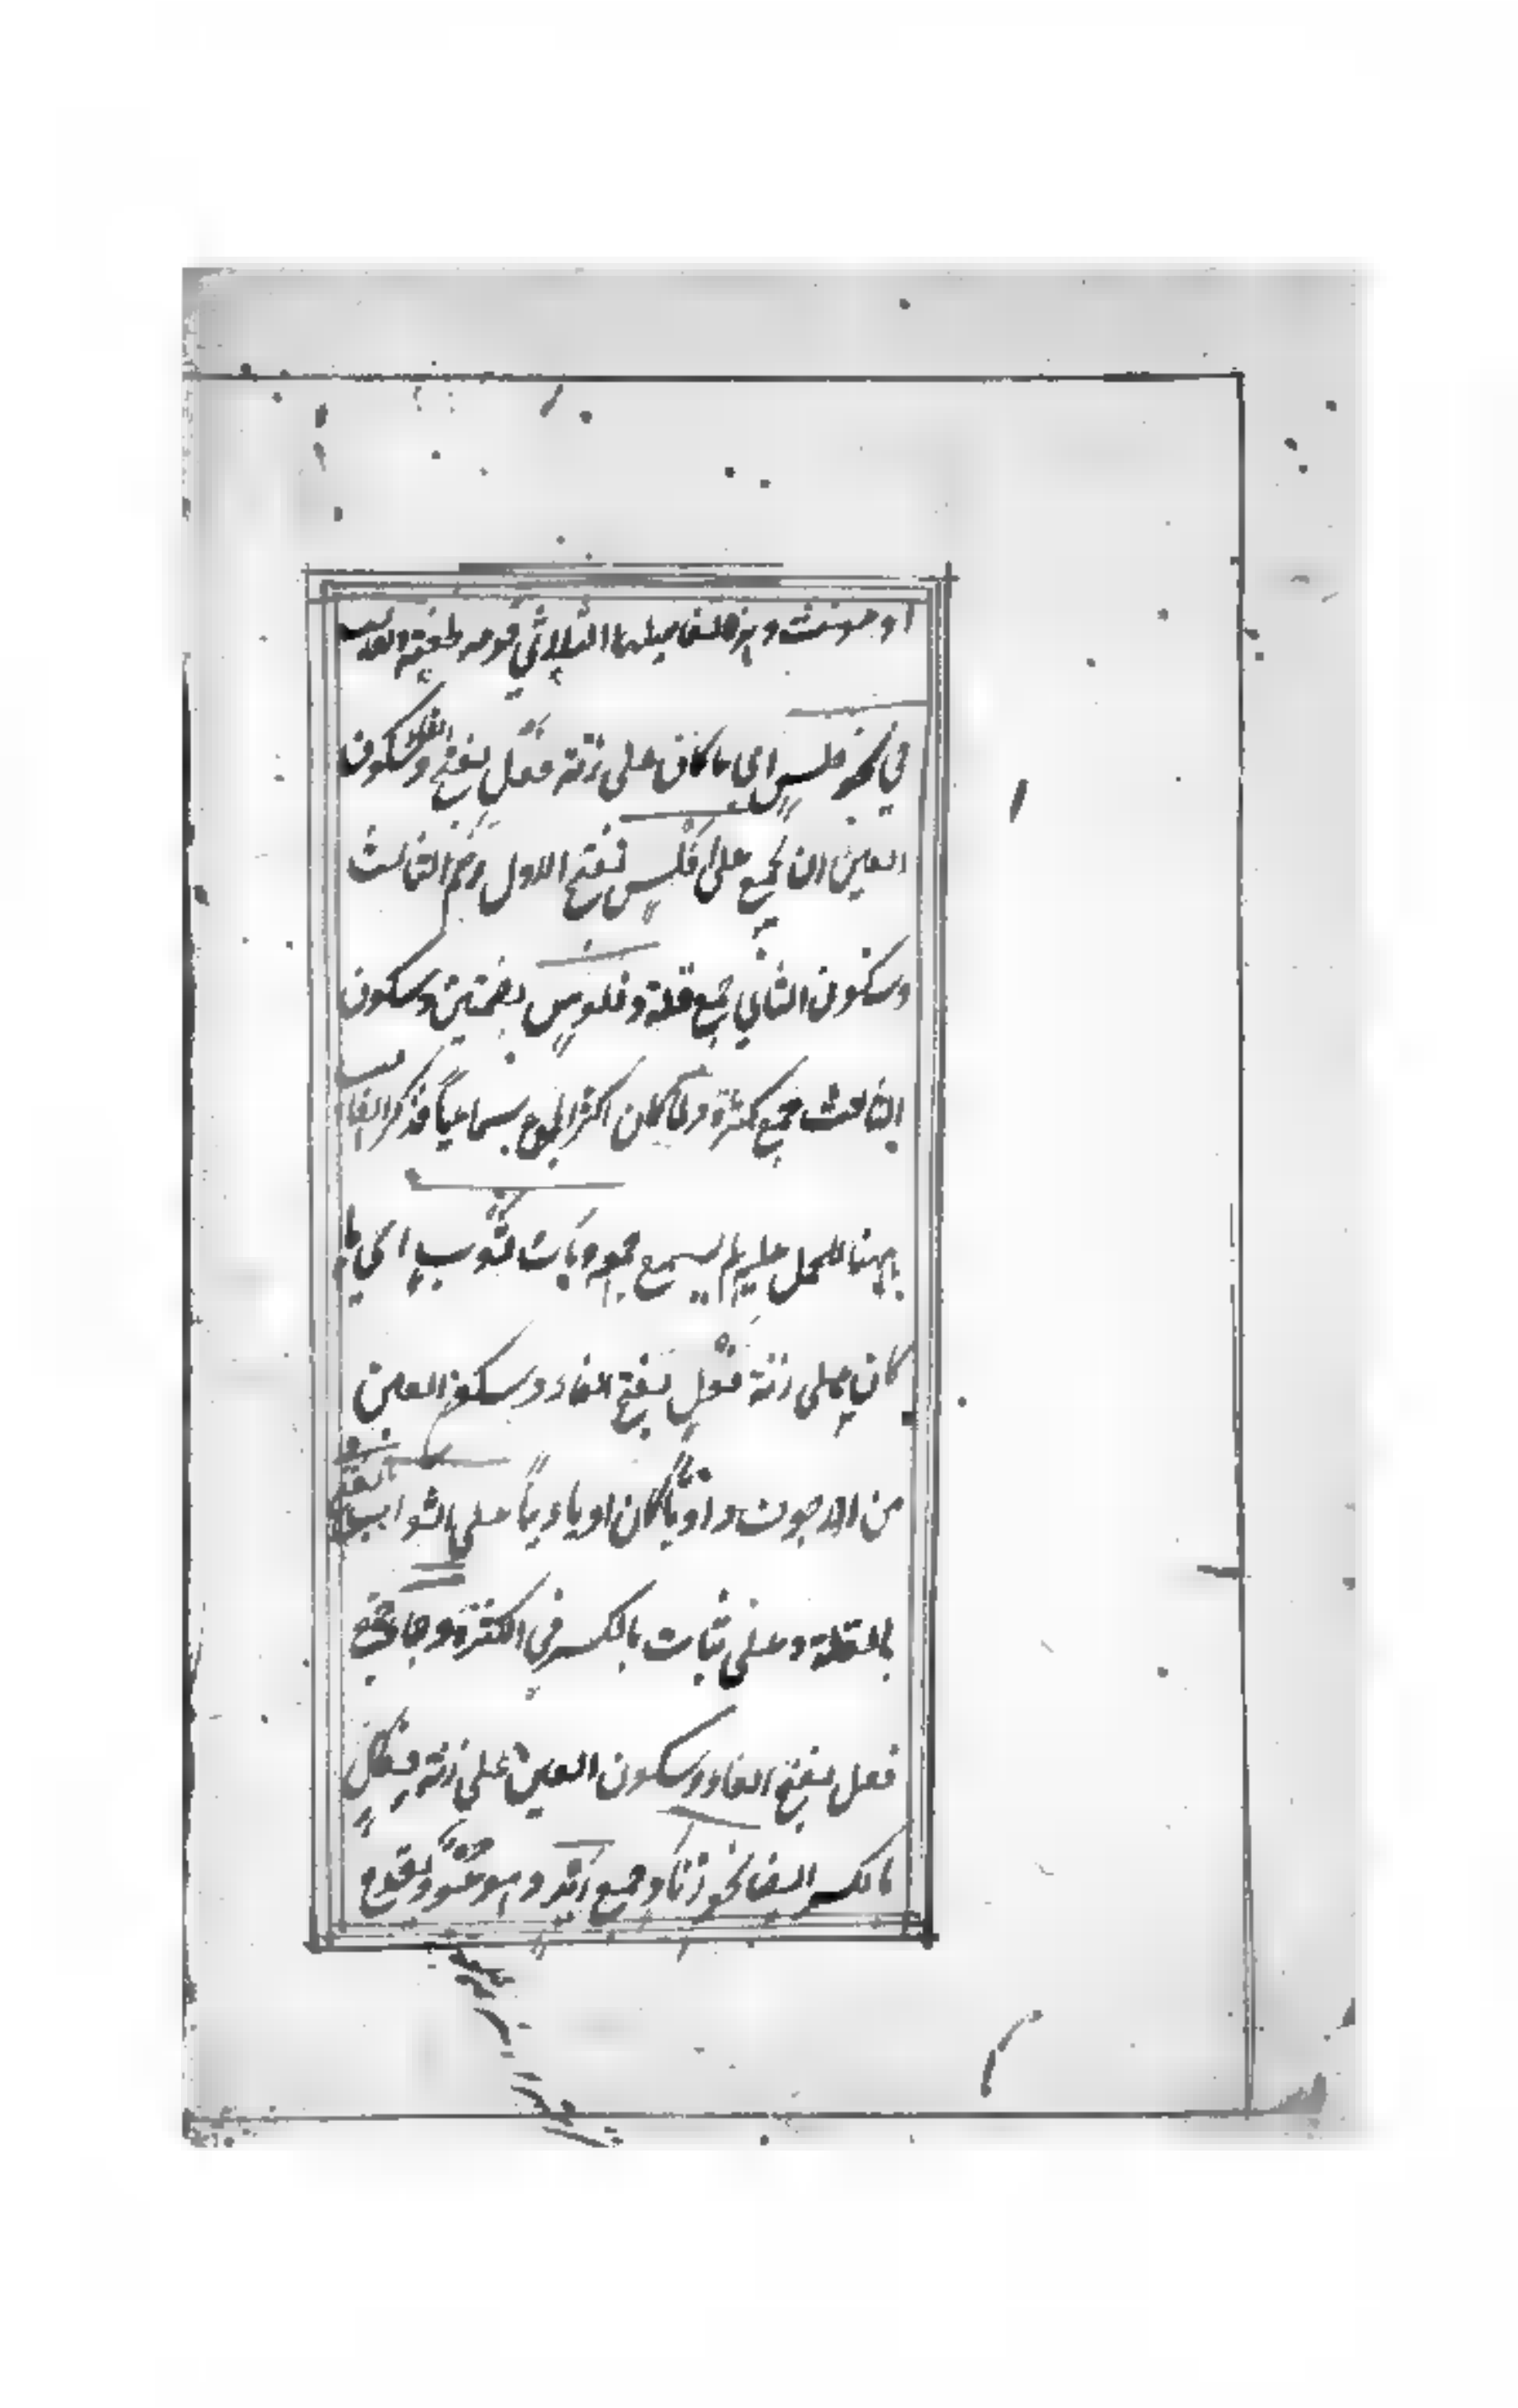 او مونث وهذه تفاصيلها الثلاثي قوله
في نحو فلس اي ما كان على زنة فعل بفتح الفاء وسكون
العين ان يجمع على افلس بفتح الاول وضم الثالث
وسكون الثاني جمع قلة وفلوس بضمتين وسكون
الثالث جمع كثرة ولما كان اكثر الجموع سماعياً فذكر الغالب
ههنا للحمل عليه ما لم يسمع جمعه وباب ثوب اي ما
كان على زنة فعل بفتح الفاء وسكون العين
من الاجوف واوياً كان او يائياً على اثواب
بالقلة وعلى ثياب بالكسر في الكثرة وجاء جمع
فعل بفتح الفاء وسكون العين على زنة فعال
بالكسر ايضا نحو زناد جمع زند وهو